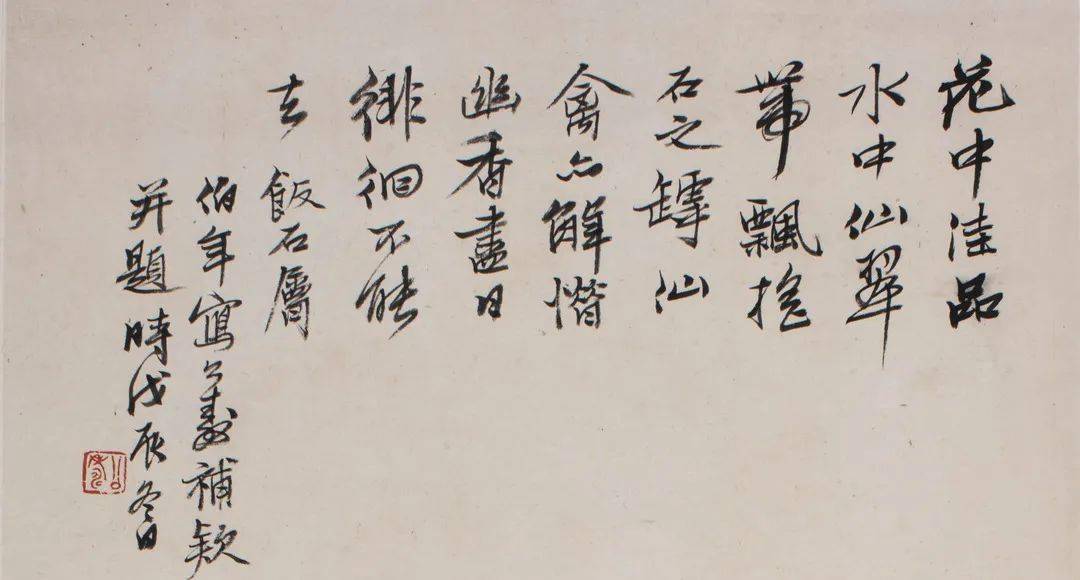 花中佳品
水中仙翠
帶飄搖
石之罅仙
禽亦解惜
幽香盡日
徘徊不能
去 飯石層
伯年寫公壽補款
并題 時戊辰冬日